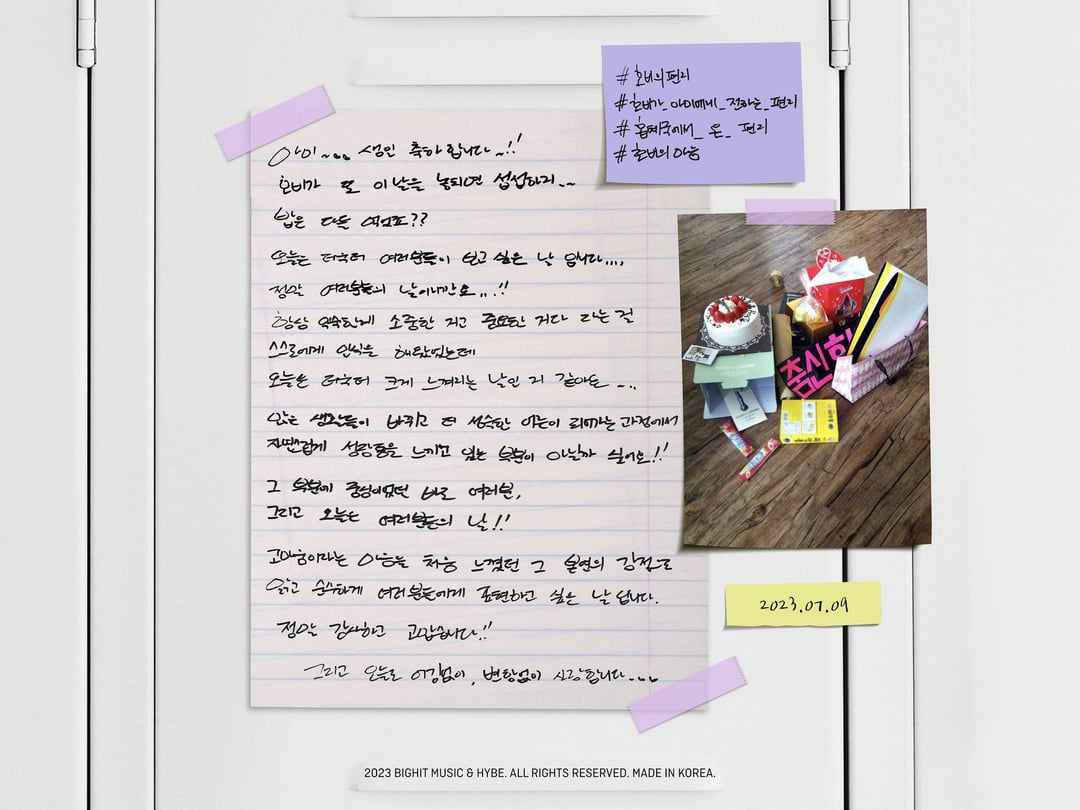 아미~... 생일 축하합니다~!!
호비가 또 이날을 놓치면 섭섭하지..~
밥은 다들 여섰죠??
오늘은 더욱더 여러분들이 보고 싶은 날 입니다....
정말 여러분들의 날이니깐요...!!
항상 익숙한게 소중한 지고 중요한 거다 라는 걸
스스로에게 인식을 해왔었는데
오늘은 더욱더 크게 느껴지는 날인 거 같아요 ....
많은 생각들이 바뀌고 더 성숙한 어른이 되어가는 과정에서
자연스럽게 성장통을 느끼고 있는 부분이 아닐까 싶어요!!
그 부분에 중심이었던 바로 여러분,
그리고 오늘은 여러분들의 날!!
고마움이라는 마음을 처음 느꼈던 그 본연의 감정으로
맑고 순수하게 여러분들에게 표현하고 싶은 날 입니다.
정말 감사하고 고맙습니다!!
그리고 오늘도 어김없이, 변함없이 사랑합니다....
#호비의편지
#호비가_아미에게_전하는_편지
#홉체국에서_온_편지
#호비의마음
춤신
2023.07.09
2023 BIGHIT MUSIC & HYBE. ALL RIGHTS RESERVED. MADE IN KOREA.